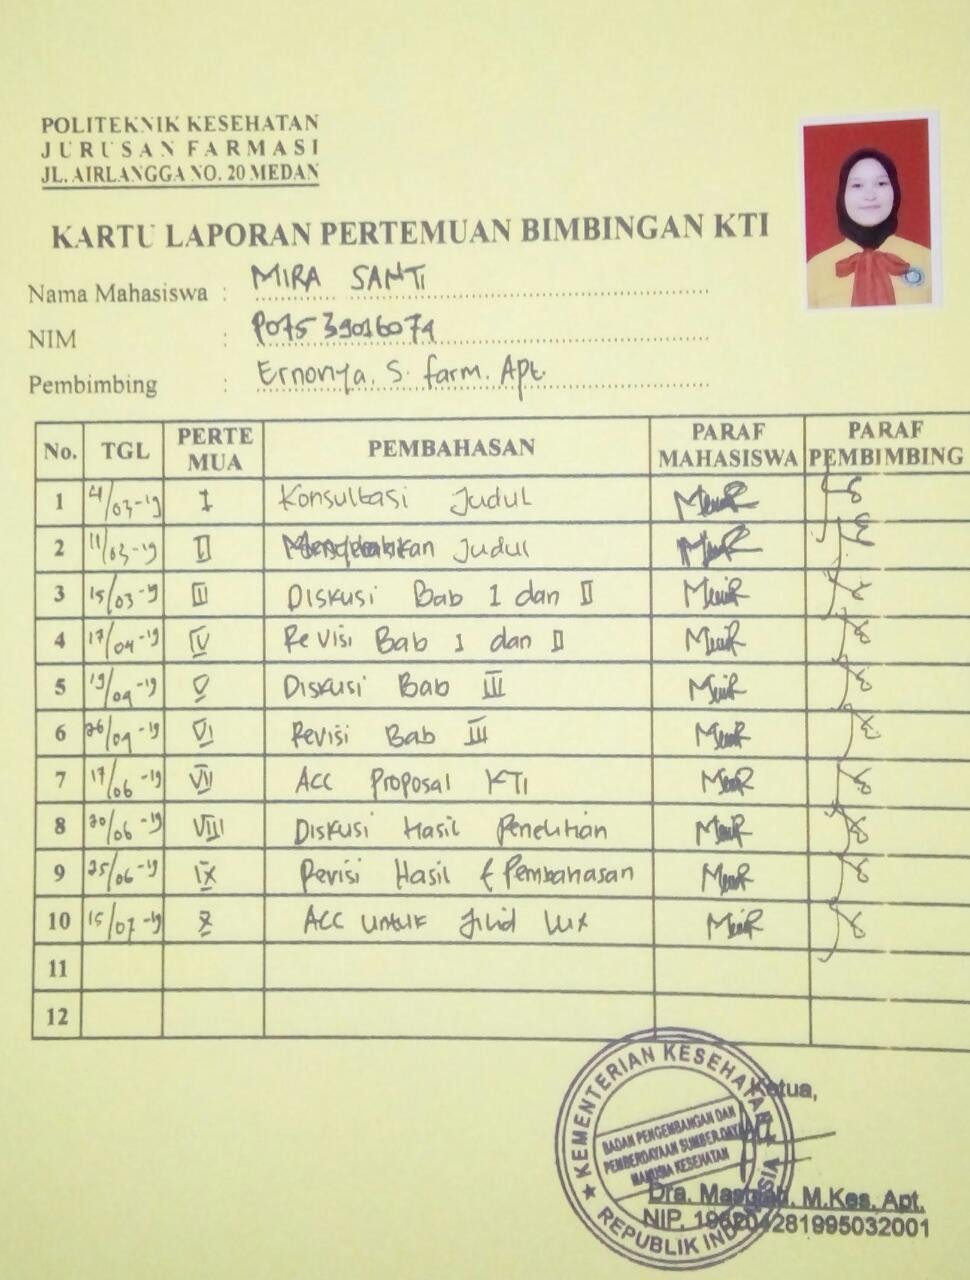 POLITEKNIK KESEHATAN
JURUSAN FARMASI
JL. AIRLANGGA NO. 20 MEDAN
KARTU LAPORAN PERTEMUAN BIMBINGAN KTI
Nama Mahasiswa : MIRA SANTI
NIM : P07539016074
Pembimbing : Ernonya, S. farm. Apt.
No. TGL PERTE MUA PEMBAHASAN PARAF MAHASISWA PARAF PEMBIMBING
1 4/03-19 I Konsultasi Judul
2 11/03-19 II Judul
3 15/03-19 III Diskusi Bab 1 dan II
4 17/04-19 IV Revisi Bab 1 dan II
5 19/04-19 V Diskusi Bab III
6 26/04-19 VI Revisi Bab III
7 17/06-19 VII Acc Proposal KTI
8 20/06-19 VIII Diskusi Hasil Penelitian
9 25/06-19 IX Revisi Hasil & Pembahasan
10 15/07-19 X ACC untuk Jilid lux
11
12
Ketua,
KEMENTERIAN KESEHATAN
BADAN PENGEMBANGAN DAN
PEMBERDAYAAN SUMBER DAYA
MANUSIA KESEHATAN
REPUBLIK INDONESIA
Dra. Masniah, M.Kes, Apt.
NIP. 196204281995032001